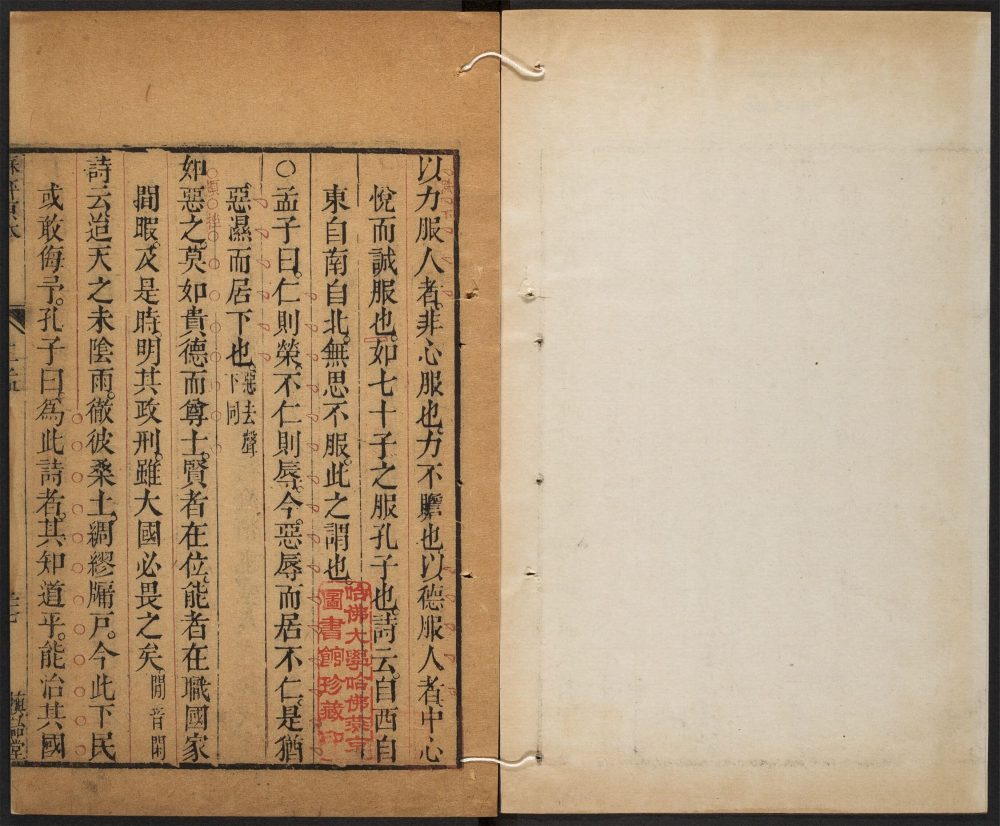 以力服人者非心服也力不贍也以德服人者中心
悅而誠服也如七十子之服孔子也詩云自西自
東自南自北無思不服此之謂也
○孟子曰仁則榮不仁則辱今惡辱而居不仁是猶
惡濕而居下也惡去聲下同
如惡之莫如貴德而尊士賢者在位能者在職國家
閒暇及是時明其政刑雖大國必畏之矣閒音閑
詩云迨天之未陰雨徹彼桑土綢繆牖戶今此下民
或敢侮予孔子曰爲此詩者其知道乎能治其國
慎詒堂
哈佛大學哈佛燕京
圖書館珍藏印